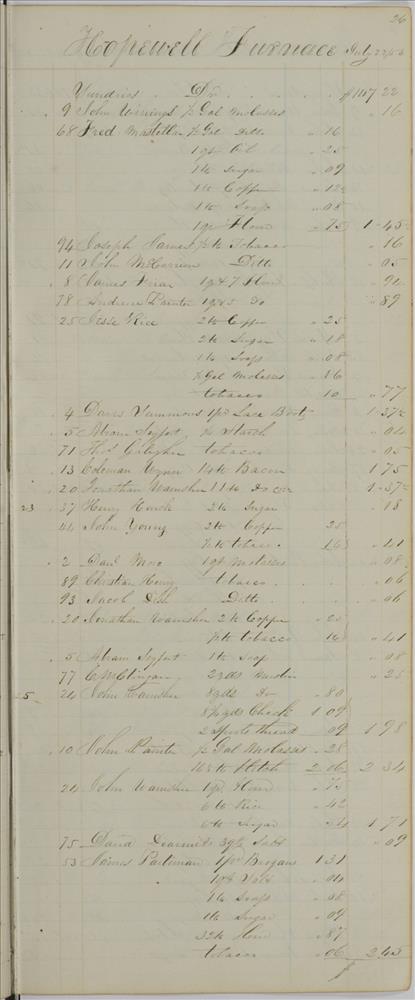 26
Hopewell Furnace July 22/53
Sundries Dr $1107 22
9 John Winings ½ Gal Molasses " 16
68 Fred ½ Gal Ditto " 16
1 qt Oil " 25
1 lb Sugar " 09
1 lb Coffee " 12½
1 lb Soap " 08
1 qr Flour " 75 1.45½
94 Joseph James ½ lb Tobacco " 16
11 John McGorrien Ditto " 05
8 James 1 qr & 7 Flour " 94
78 Andrew Painter 1 qr & 5 Do " 89
25 Jesse Rice 2 lb Coffee " 25
2 lb Sugar " 18
1 lb Soap " 08
½ Gal Molasses " 16
tobacco 10 " 77
4 Davis Yummons 1 pr Lace Boots 1.37½
5 Abram Seyfert ½ lb Starch " 04
71 Thos Galagher tobacco " 05
13 Coleman Wynn 14 lb Bacon 1 75
20 Jonathan Wamsher 11 lb Do 1.37½
23 37 Henry Houck 2 lb Sugar " 18
44 John Young 2 lb Coffee 25
½ lb tobacco 16 " 41
2 Danl 1 qt Molasses " 08
89 Christian Henry tobacco " 06
93 Jacob Dish Ditto " 06
20 Jonathan Wamsher 2 lb Coffee " 25
½ lb tobacco 16 " 41
5 Abram Seyfert 1 lb Soap " 08
77 C M Clingan 2 yds Muslin " 25
25 24 John Wamsher 8 yds Do " 80
8½ yds Check 1 09
2 Spools thread " 09 1 98
10 John Painter ½ Gal Molasses " 28
16½ lb Flitch 2 06 2 34
24 John Wamsher 1 qr Flour " 75
6 lb Rice " 42
6 lb Sugar " 54 1 71
75 David Dearmit Salt " 09
53 James Parliman 1 pr Brogans 1 31
1 qt Salt " 04
1 lb Soap " 08
1 lb Sugar " 09
32 lb Flour " 87
tobacco " 06 2 45